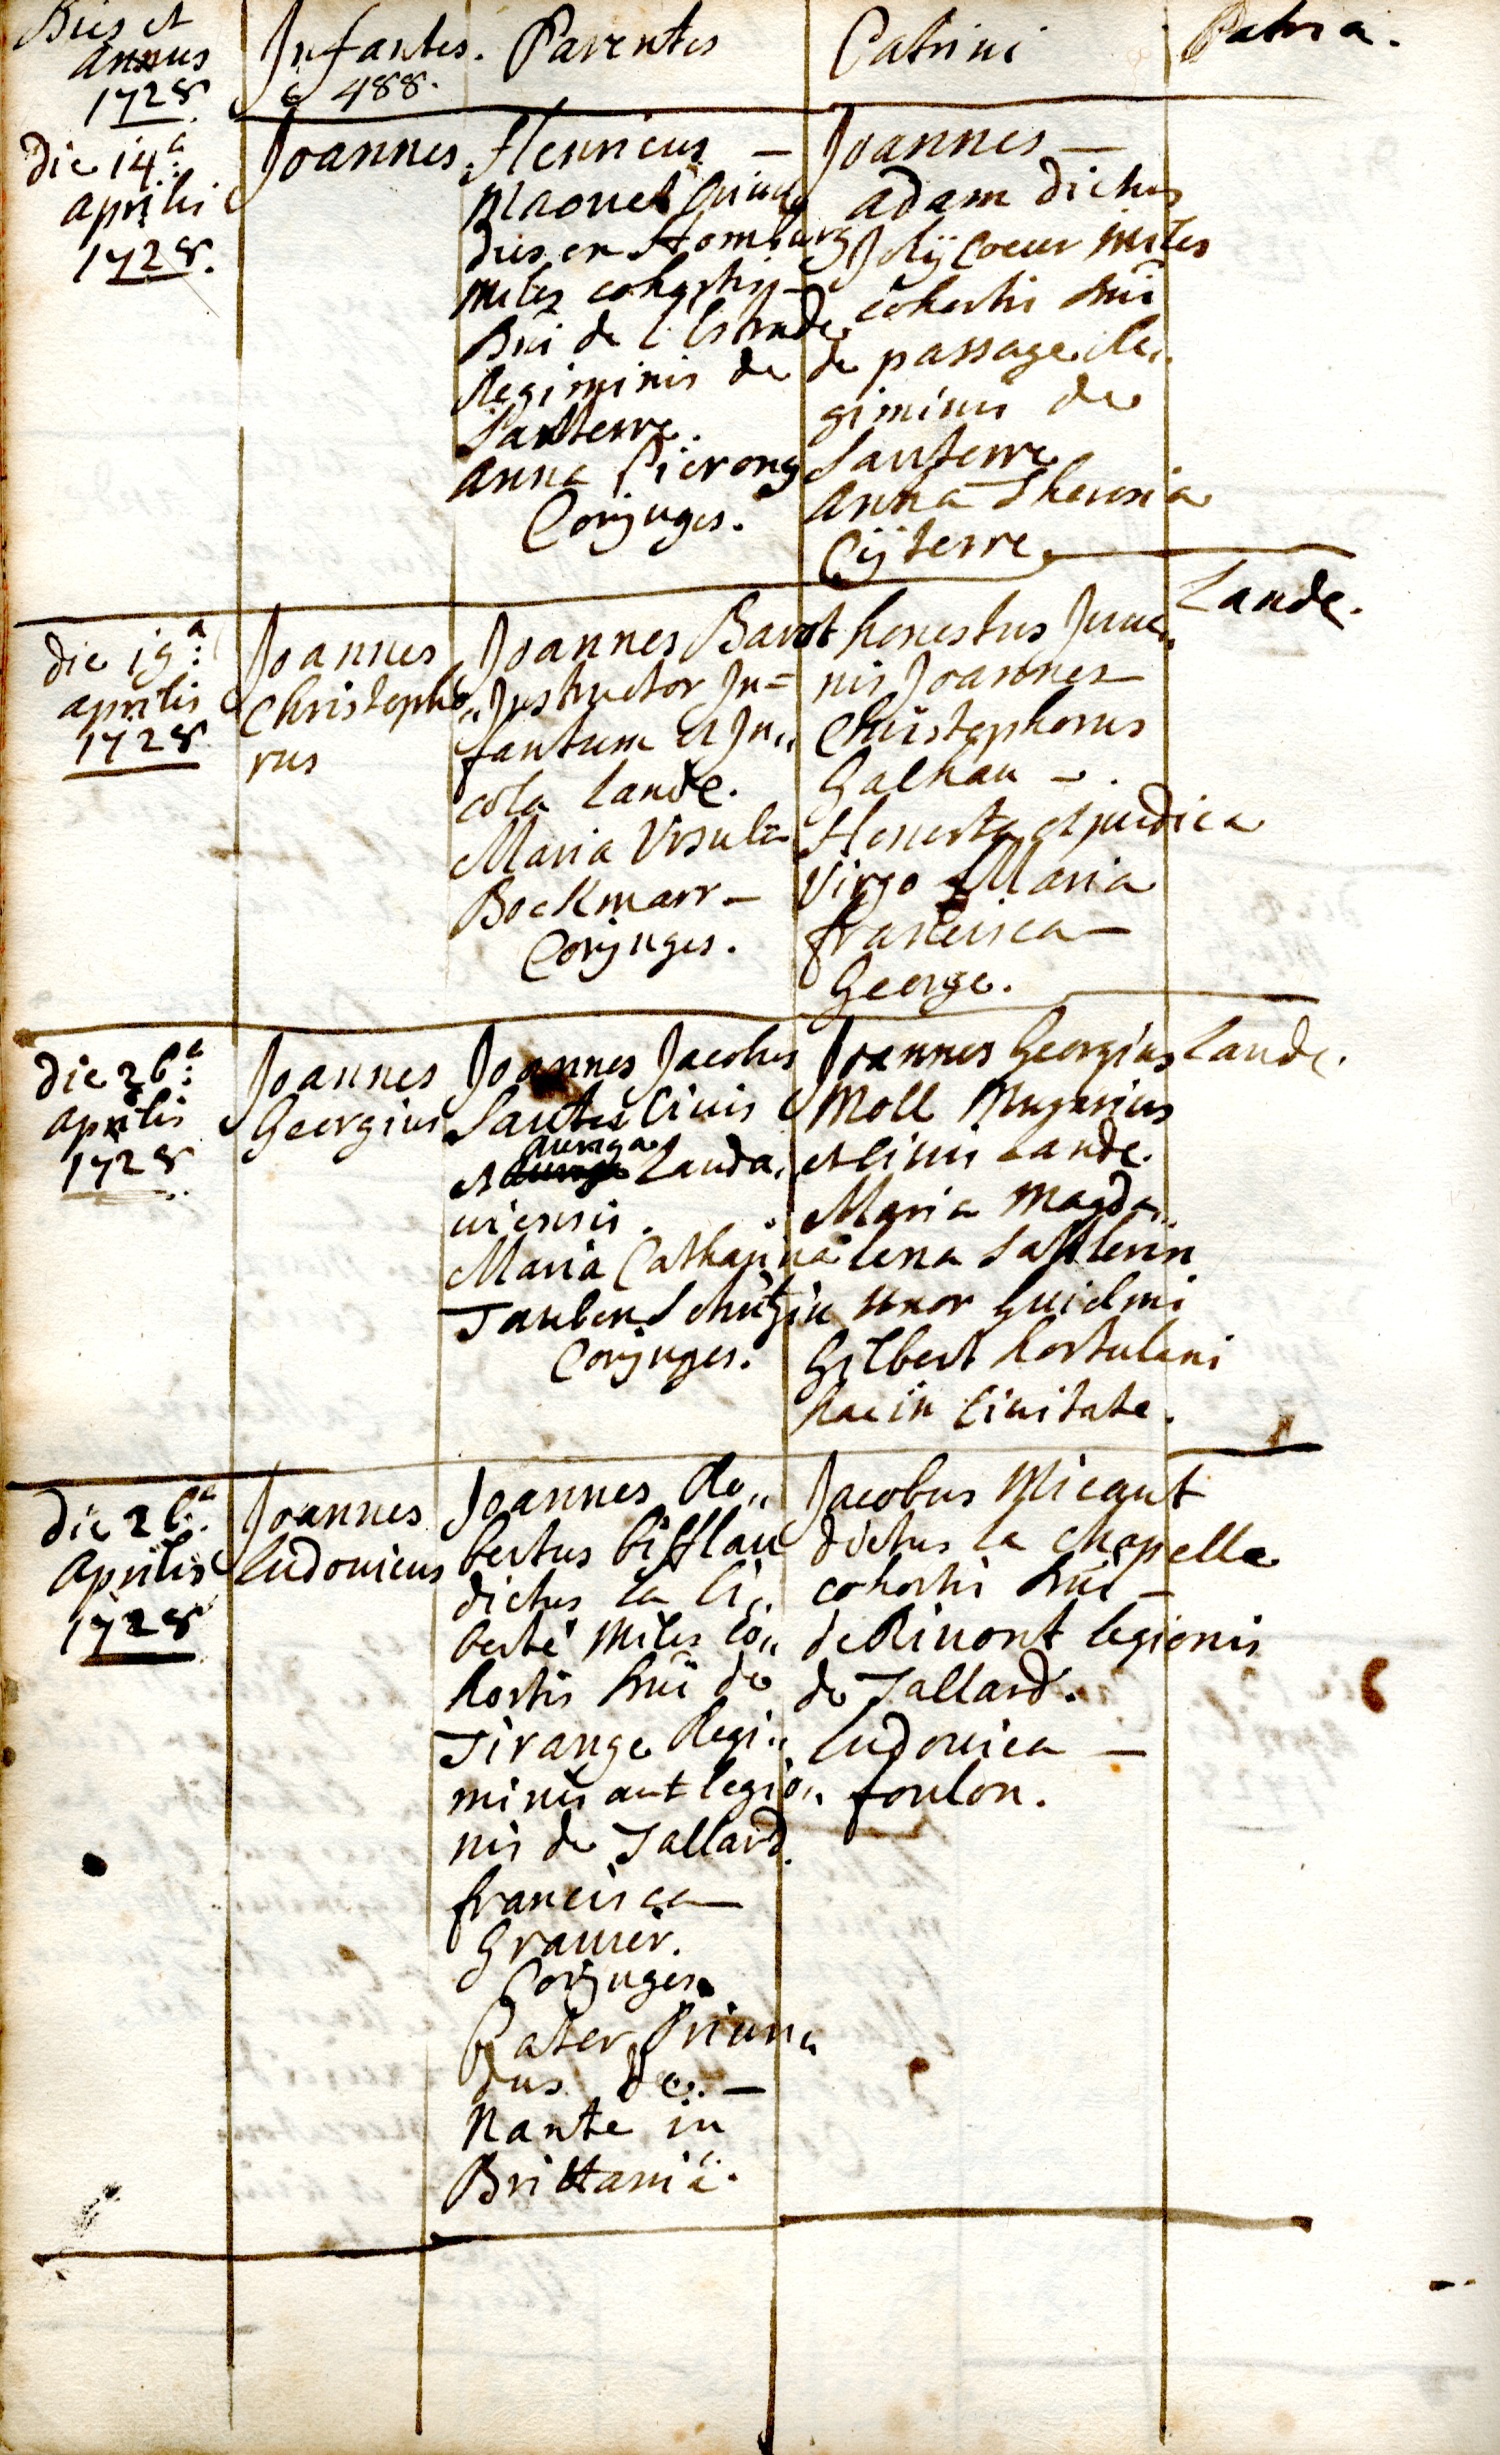 Dies et
annus
1728
Infantes.
488.
Parentes
Patrini
Patria.
die 14a
aprilis
1728.
Joannes
Henricus —
Maouet Oriun
dus ex Homburg
Miles cohortis
Dni de l'Estrade
Regiminis de
Santerre.
Anna Pierong
Conjuges.
Joannes —
adam dictus
Joly Coeur Miles
cohortis Dni
de passage Re„
giminis de
Santerre
Anna Theresia
Cyterre
die 19a:
aprilis
1728
Joannes
Christopho„
rus
Joannes Barot
Instructor In=
fantum et In„
cola Landę.
Maria Ursula
Bockmarr —
Conjuges.
honestus Juve„
nis Joannes
Christophorus
Galhau —.
Honesta et pudica
Virgo Maria
francisca —
George.
Landę.
die 26a:
aprilis
1728
Joannes
Georgius
Joannes Jacobus
Sauter Civis
auriga
et Landa„
viensis.
Maria Catharina
Tauben Schützin
Conjuges.
Joannes Georgius
Moll Mugnius
et Civis Landę.
Maria Magda„
lena Sattlerin
uxor Guielmi
Gilbert hortulani
hac in Civitate.
Landę.
die 26a:
Aprilis
1728
Joannes
ludovicus
Joannes Ro„
bertus bifflau
dictus la li„
berté Miles co„
hortis Dni de
Tirange Regi„
minis aut legio„
nis de Tallard.
francisca —
Gravier.
Conjuges
Pater Oriun„
dus de. —
Nante in
Brittaniâ.
Jacobus Micaut
dictus la chapelle
cohortis Dni —
de Rivont legionis
de Tallard.
ludovica —
foulon.